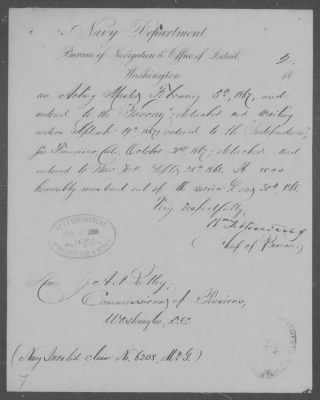 Navy Department
Bureau of Navigation & Office of Detail
2
Washington 18
an Acting Master February 5th, 1867, and
ordered to the ; detached and waiting
orders Sept. 19th 1867; ordered to the Independence,
San Francisco, Cala, October 20th 1867; detached and
ordered to New York Sept. 1868. He was
honorably mustered out of the service Decr 1868.
Very respectfully,
Chief of Bureau.
NAVY DEPARTMENT
Hon. J. A. Bentley,
Commissioner of Pensions,
Washington, D.C.
(Navy Invalid Claim No. 6208, McG.)